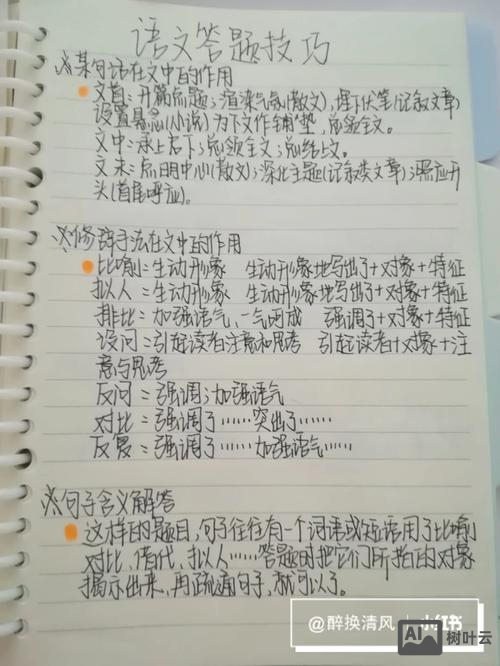 语文答题技巧
※某句话在文中的作用
文首:开篇点题;渲染气氛(散文),埋下伏笔(记叙文章)
设置悬念(小说)为下文作铺垫,总领全文。
文中:承上启下;总领全文;总结上文。
文末:点明中心(散文);深化主题(记叙类文章);照应开
头(首尾呼应)。
※修辞手法在文中的作用
比喻=生动形象 生动形象地写出了+对象+特征
拟人=生动形象 生动形象地写出了+对象+特征
排比=加强语气、一气而成 强调了+对象+特征
设问=引起读者注意和思考 引起读者+对象+注
意与思考
反问=强调;加强语气
对比=强调了……突出了……
反复=强调了……加强语气……
※句子含义解答
这样的题目,句子往往有一个词语或短语用了比喻
对比、借代、拟人……答题时把它们所指的对象
揭示出来,再疏通句子,就可以了。
@醉换清风 小红书
AI 树叶云